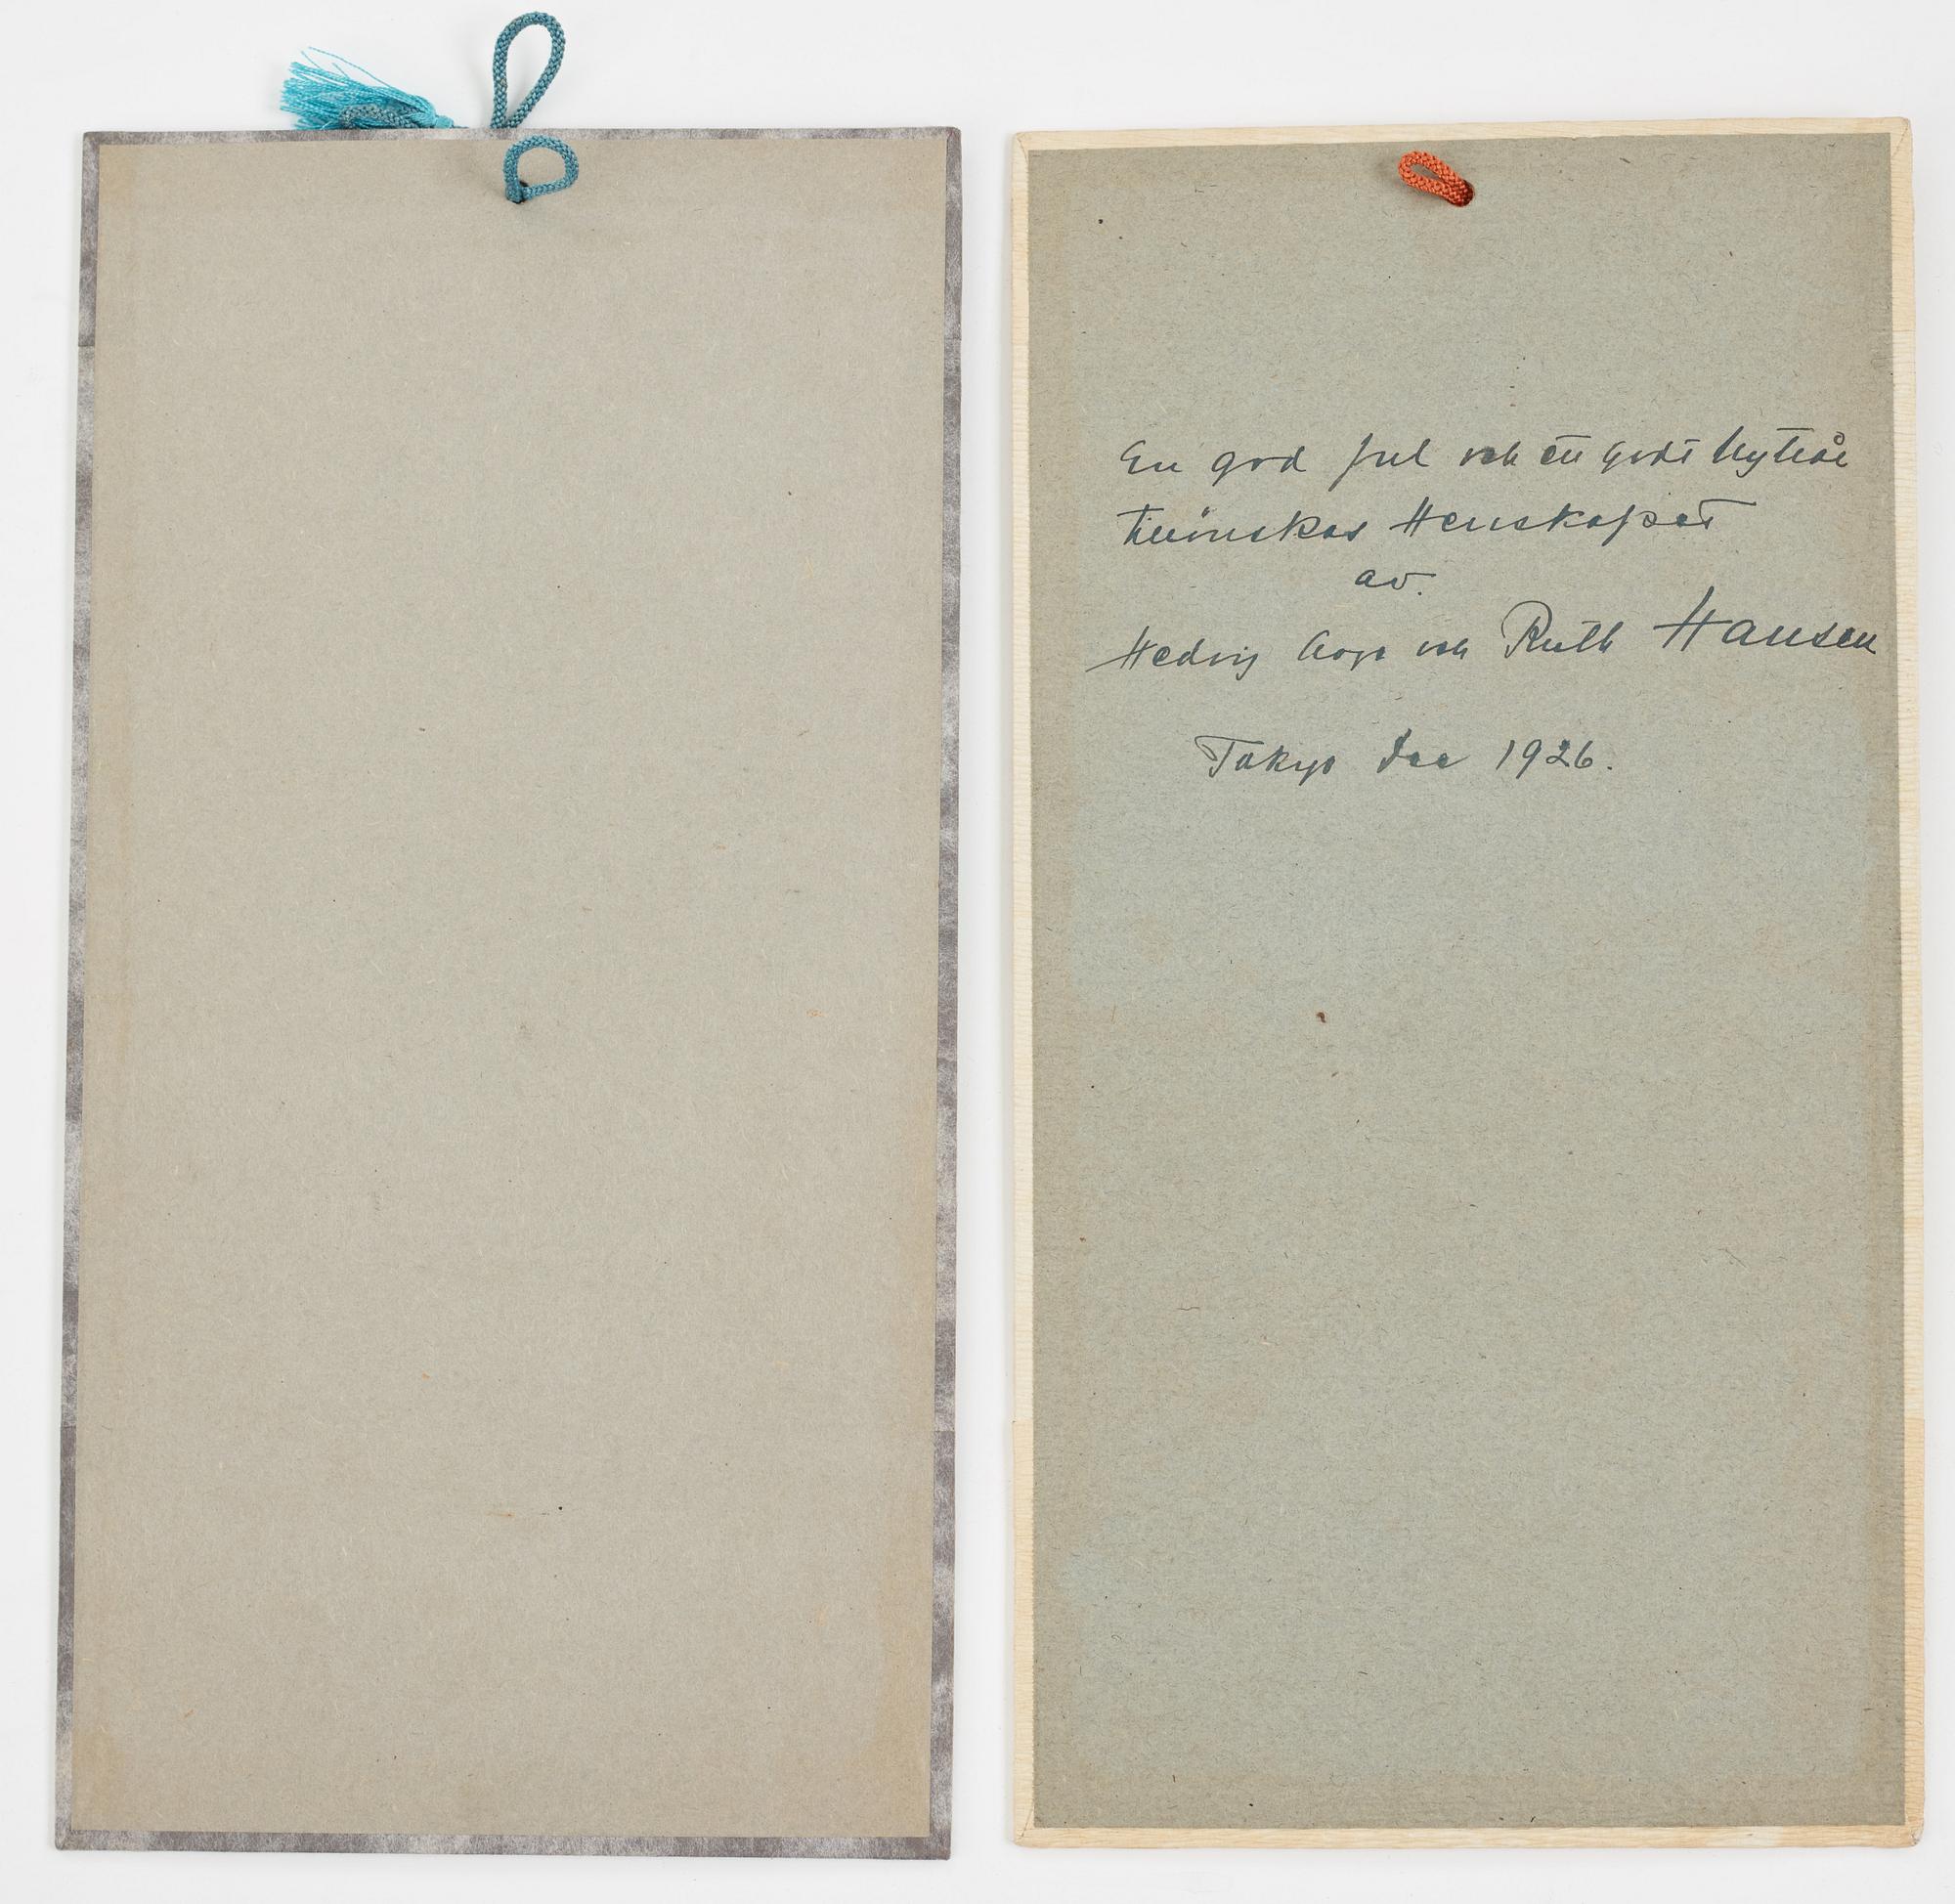 En god jul och ett godt Nytt år
tillönskas Herrskapet
av.
Hedvig Aage och Ruth Hansen
Tokyo Dec 1926.